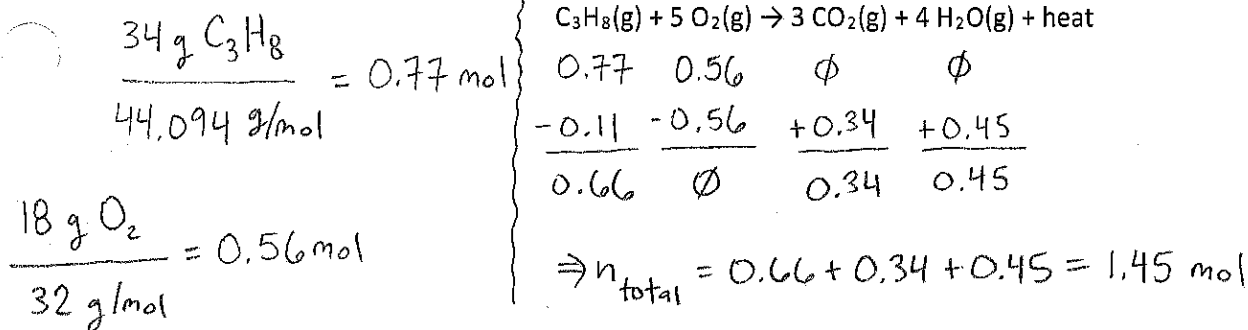 34 g C₃H₈
44.094 g/mol
= 0.77 mol
18 g O₂
32 g/mol
= 0.56 mol
C₃H₈(g) + 5 O₂(g) → 3 CO₂(g) + 4 H₂O(g) + heat
0.77 0.56 ∅ ∅
-0.11 -0.56 +0.34 +0.45
0.66 ∅ 0.34 0.45
⇒ n total = 0.66 + 0.34 + 0.45 = 1.45 mol